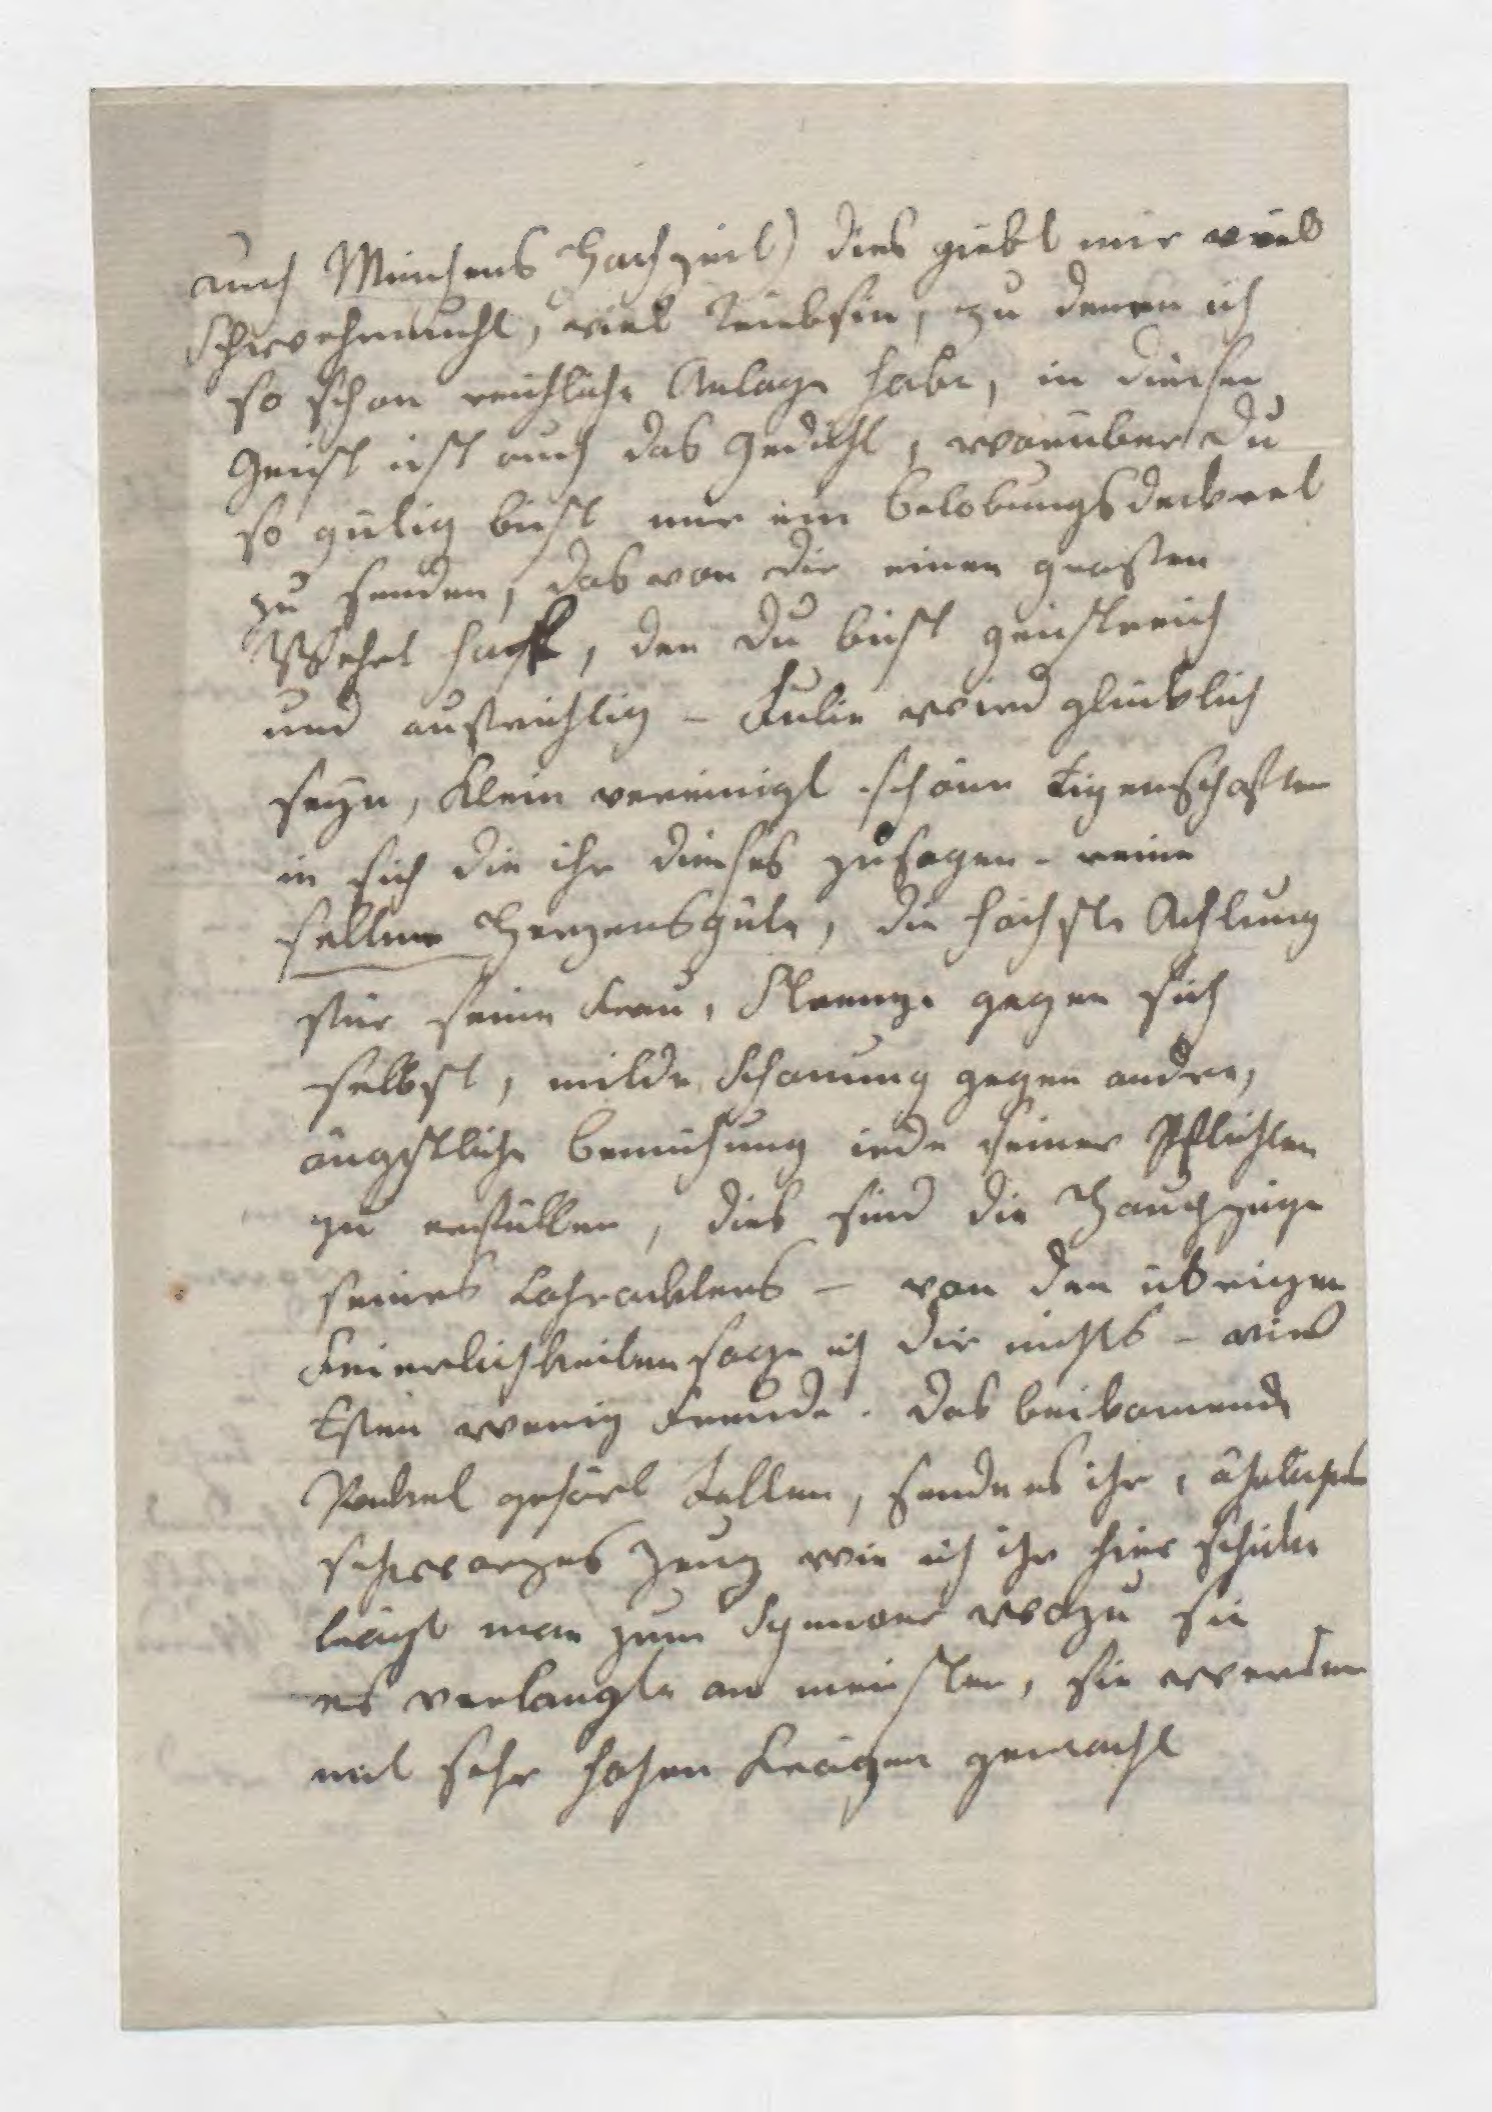 auch Minchens Hochzeit) dies giebt mir viel
Schwehrmucht, viel Trübsin, zu denen ich
so schon reichliche Anlage habe, in dieser
Geist ist auch das Gedicht, worüber Du
so gütig bist mir ein belobungsdeckret
zu senden, das von dir einen grosen
Wehrt hat, den Du bist geistreich
und aufrichtig – Julie wird glücklich
seyn, Klein vereinigt schöne Eigenschaften
in sich die ihr dieses zusagen – reine
seltne Herzensgüte, die höchste Achtung
für seine Frau, Strenge gegen sich
selbst, milde Schonung gegen andre,
ängstliche bemühung iede seiner Pflichten
zu erfüllen, dies sind die Hauptzüge
seines Cahrackters – von den übrigen
Feierlichkeiten sage ich dir nichts – viel
Essen wenig Freude. Das beikomende
Packet gehört, sende es ihr,
schwarzes Zeug wie ich ihr hier schicke
trägt man zum Spenser wozu sie
es verlangte am meisten, sie werden
mit sehr hohen Krägen gemacht